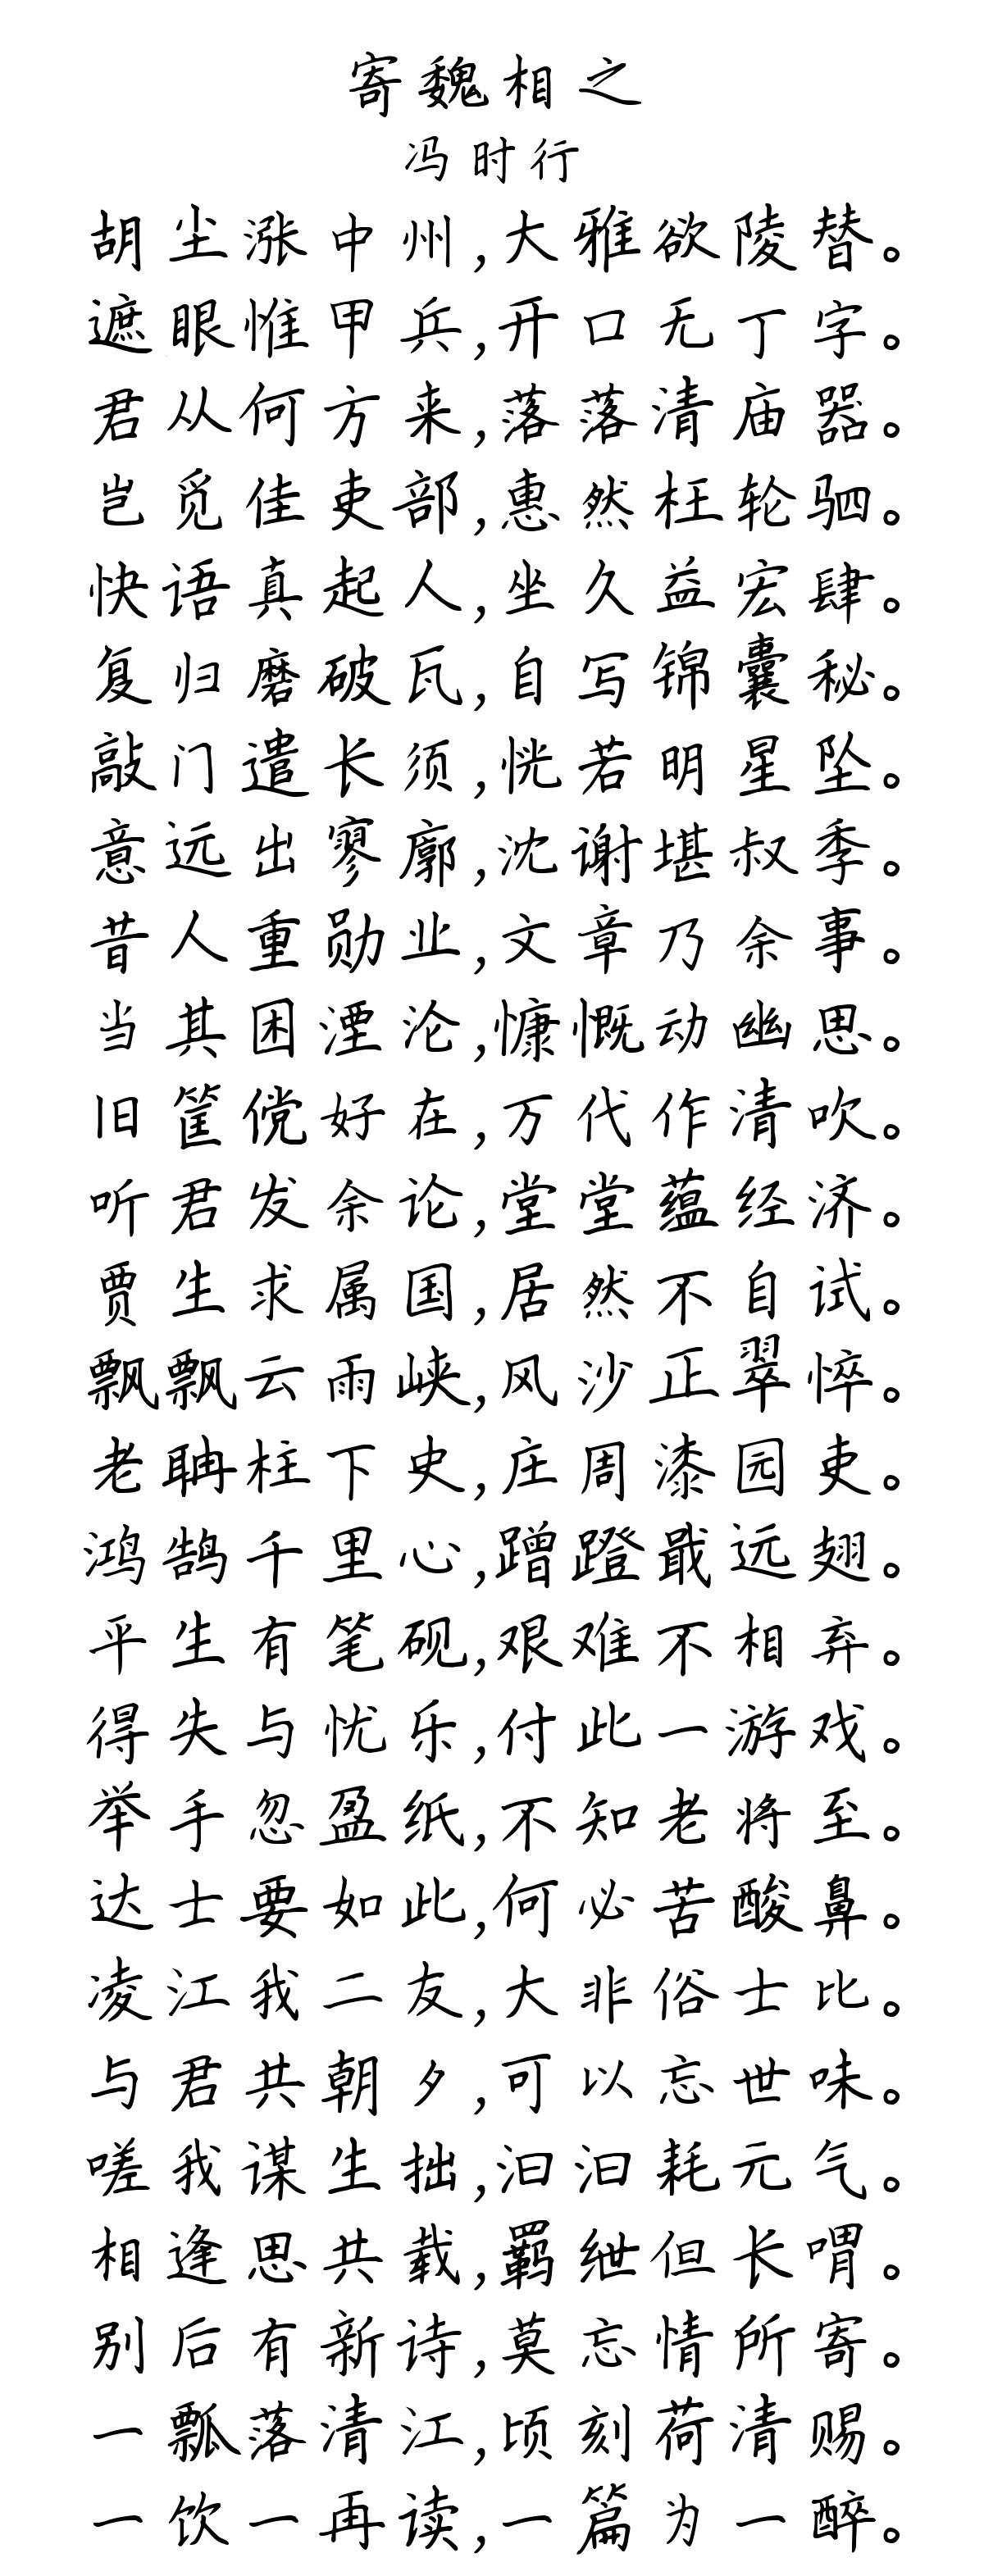 寄魏相之
冯时行
胡尘涨中州,大雅欲陵替。
遮眼惟甲兵,开口无丁字。
君从何方来,落落清庙器。
岂觅佳吏部,惠然枉轮驷。
快语真起人,坐久益宏肆。
复归磨破瓦,自写锦囊秘。
敲门遣长须,恍若明星坠。
意远出寥廓,沈谢堪叔季。
昔人重勋业,文章乃余事。
当其困湮沦,慷慨动幽思。
旧筐傥好在,万代作清吹。
听君发余论,堂堂蕴经济。
贾生求属国,居然不自试。
飘飘云雨峡,风沙正翠悴。
老聃柱下史,庄周漆园吏。
鸿鹄千里心,蹭蹬戢远翅。
平生有笔砚,艰难不相弃。
得失与忧乐,付此一游戏。
举手忽盈纸,不知老将至。
达士要如此,何必苦酸鼻。
凌江我二友,大非俗士比。
与君共朝夕,可以忘世味。
嗟我谋生拙,汩汩耗元气。
相逢思共载,羁绁但长喟。
别后有新诗,莫忘情所寄。
一瓢落清江,顷刻荷清赐。
一饮一再读,一篇为一醉。